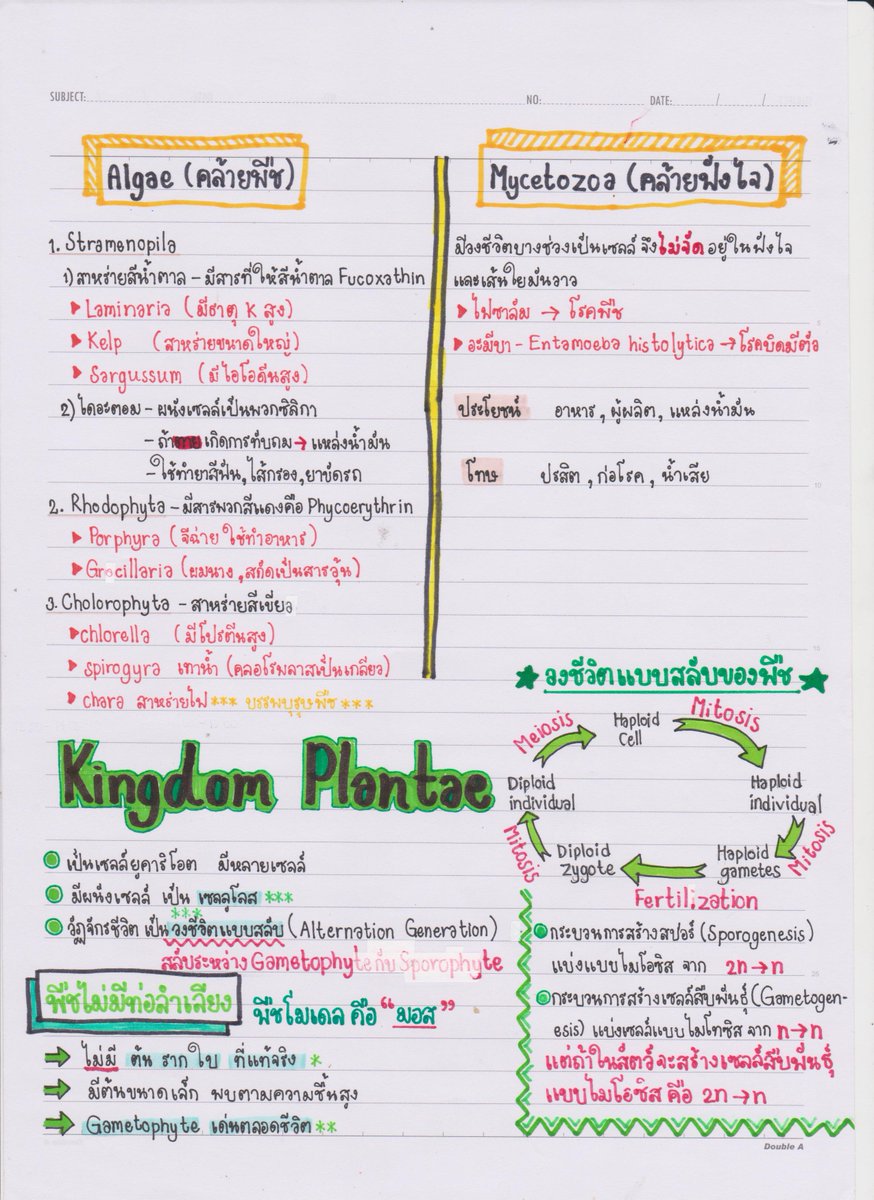 SUBJECT:
NO:
DATE: / /
Algae (คล้ายพืช)
1. Stramenopila
1) สาหร่ายสีน้ำตาล - มีสารที่ให้สีน้ำตาล Fucoxathin
Laminaria (มีธาตุ K สูง)
Kelp (สาหร่ายขนาดใหญ่)
Sargussum (มีไอโอดีนสูง)
2) ไดอะตอม - ผนังเซลล์เป็นพวกซิลิกา
- ถ้าตาย เกิดการทับถม → แหล่งน้ำมัน
- ใช้ทำยาสีฟัน, ไส้กรอง, ยาขัดรถ
2. Rhodophyta - มีสารพวกสีแดงคือ Phycoerythrin
Porphyra (จีฉ่าย ใช้ทำอาหาร)
Gracillaria (ผมนาง, สกัดเป็นสารวุ้น)
3. Cholorophyta - สาหร่ายสีเขียว
chlorella (มีโปรตีนสูง)
spirogyra เทาน้ำ (คลอโรพลาสเป็นเกลียว)
chara สาหร่ายไฟ *** บรรพบุรุษพืช ***
Mycetozoa (คล้ายฟังไจ)
มีวงชีวิตบางช่วงเป็นเซลล์ จึงไม่จัดอยู่ในฟังไจ
และเส้นใยมันวาว
ไฟซาลัม → โรคพืช
อะมีบา - Entamoeba histolytica → โรคบิดมีตัว
ประโยชน์ อาหาร, ผู้ผลิต, แหล่งน้ำมัน
โทษ ปรสิต, ก่อโรค, น้ำเสีย
Kingdom Plantae
เป็นเซลล์ยูคาริโอต มีหลายเซลล์
มีผนังเซลล์ เป็น เซลลูโลส ***
***
วัฏจักรชีวิต เป็น วงชีวิตแบบสลับ (Alternation Generation)
สลับระหว่าง Gametophyte กับ Sporophyte
พืชไม่มีท่อลำเลียง พืชโมเดล คือ "มอส"
ไม่มี ต้น ราก ใบ ที่แท้จริง *
มีต้นขนาดเล็ก พบตามความชื้นสูง
Gametophyte เด่นตลอดชีวิต **
วงชีวิตแบบสลับของพืช
Meiosis
Haploid
Cell
Mitosis
Haploid
individual
Mitosis
Haploid
gametes
Fertilization
Diploid
zygote
Mitosis
Diploid
individual
กระบวนการสร้างสปอร์ (Sporogenesis)
แบ่งแบบไมโอซิส จาก 2n → n
กระบวนการสร้างเซลล์สืบพันธุ์ (Gametogen-
esis) แบ่งเซลล์แบบไมโทซิส จาก n → n
แต่ถ้าในสัตว์จะสร้างเซลล์สืบพันธุ์
แบบไมโอซิส คือ 2n → n
Double A